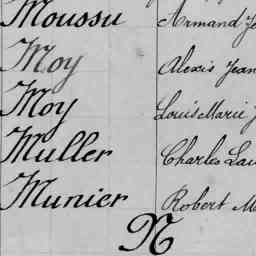 Moussu Armand
Moy Alexis Jean
Moy Louis Marie
Muller Charles
Munier Robert
N